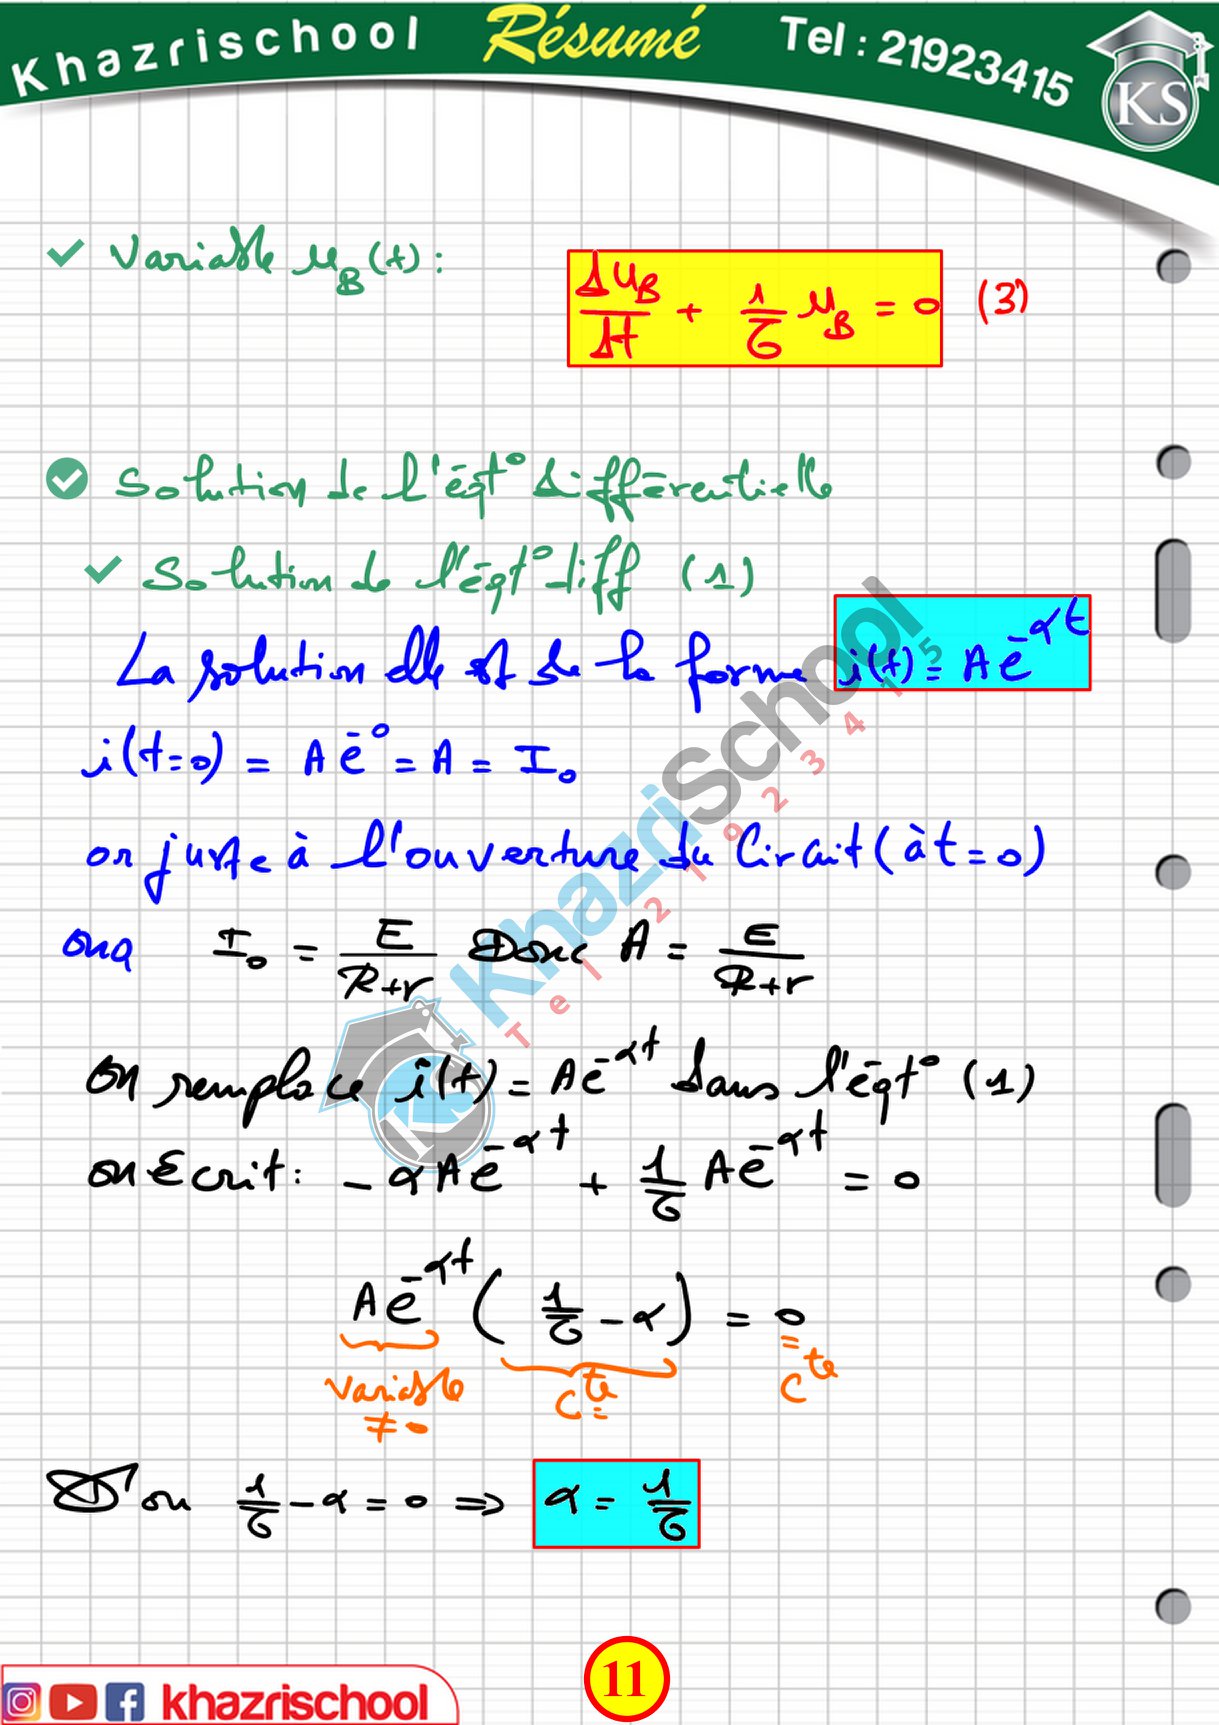 Khazrischool Résumé Tel : 21923415
KS
✓ Variable u_B(t) : du_B/dt + 1/τ u_B = 0 (3)
Solution de l'éqt° différentielle
✓ Solution de l'éqt° diff (1)
La solution elle est de la forme i(t) = A e^-αt
i(t=0) = A e^-0 = A = I₀
or juste à l'ouverture du circuit (à t = 0)
on a I₀ = E/(R+r) Donc A = E/(R+r)
On remplace i(t) = A e^-αt dans l'éqt° (1)
on Ecrit : - α A e^-αt + 1/τ A e^-αt = 0
A e^-αt ( 1/τ - α ) = 0
variable ≠ 0 cte = cte
D'ou 1/τ - α = 0 ⇒ α = 1/τ
KhazriSchool
Tel 21923415
KS
khazrischool
11